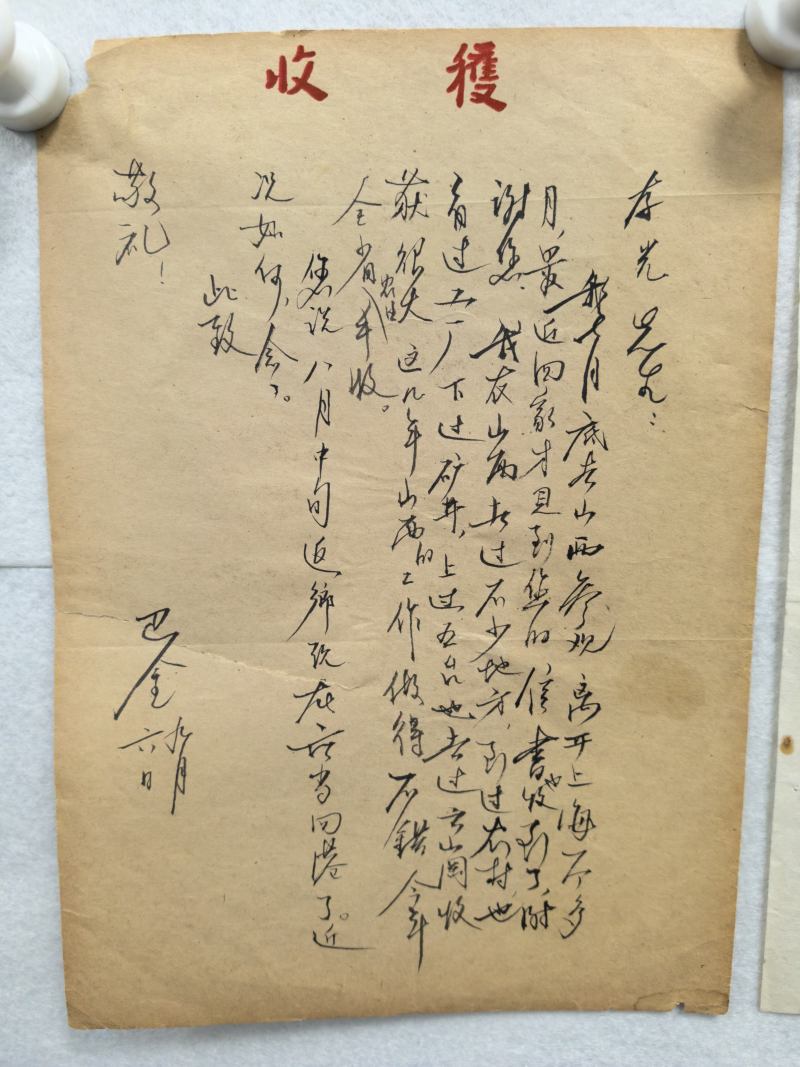 收穫
光先生：
我七月底去山西參观，离开上海一个多
月，最近回家才見到您的信，書也收到了，谢
谢您。我在山西去过不少地方，到过农村，也
看过工厂，下过矿井，上过五台，也去过云岗，收
获很大。这几年山西的工作做得不錯，今年
全省农业丰收。
您说八月中旬返鄉，现在应当回港了。近
况如何，念念。
此致
敬礼！
巴金
九月
六日